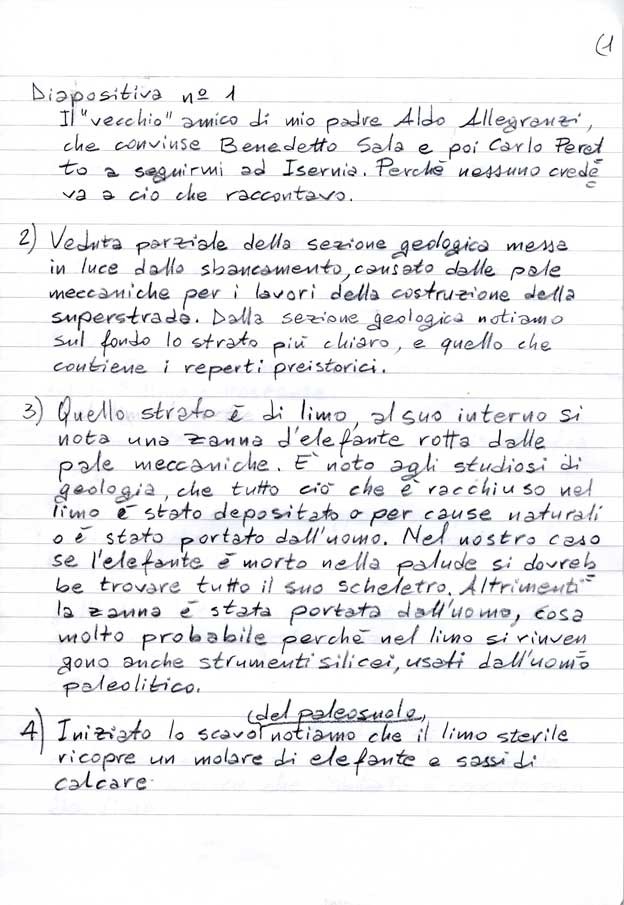 (1
Diapositiva nº 1
Il "vecchio" amico di mio padre Aldo Allegranzi,
che convinse Benedetto Sala e poi Carlo Peret
to a seguirmi ad Isernia. Perchè nessuno crede
va a ciò che raccontavo.
2) Veduta parziale della sezione geologica messa
in luce dallo sbancamento, causato dalle pale
meccaniche per i lavori della costruzione della
superstrada. Dalla sezione geologica notiamo
sul fondo lo strato più chiaro, e quello che
contiene i reperti preistorici.
3) Quello strato è di limo, al suo interno si
nota una zanna d'elefante rotta dalle
pale meccaniche. E' noto agli studiosi di
geologia, che tutto ciò che è racchiuso nel
limo è stato depositato o per cause naturali
o è stato portato dall'uomo. Nel nostro caso
se l'elefante è morto nella palude si dovreb
be trovare tutto il suo scheletro. Altrimenti
la zanna è stata portata dall'uomo, cosa
molto probabile perchè nel limo si rinven
gono anche strumenti silicei, usati dall'uomo
paleolitico.
(del paleosuolo,
4) Iniziato lo scavo notiamo che il limo sterile
ricopre un molare di elefante e sassi di
calcare.